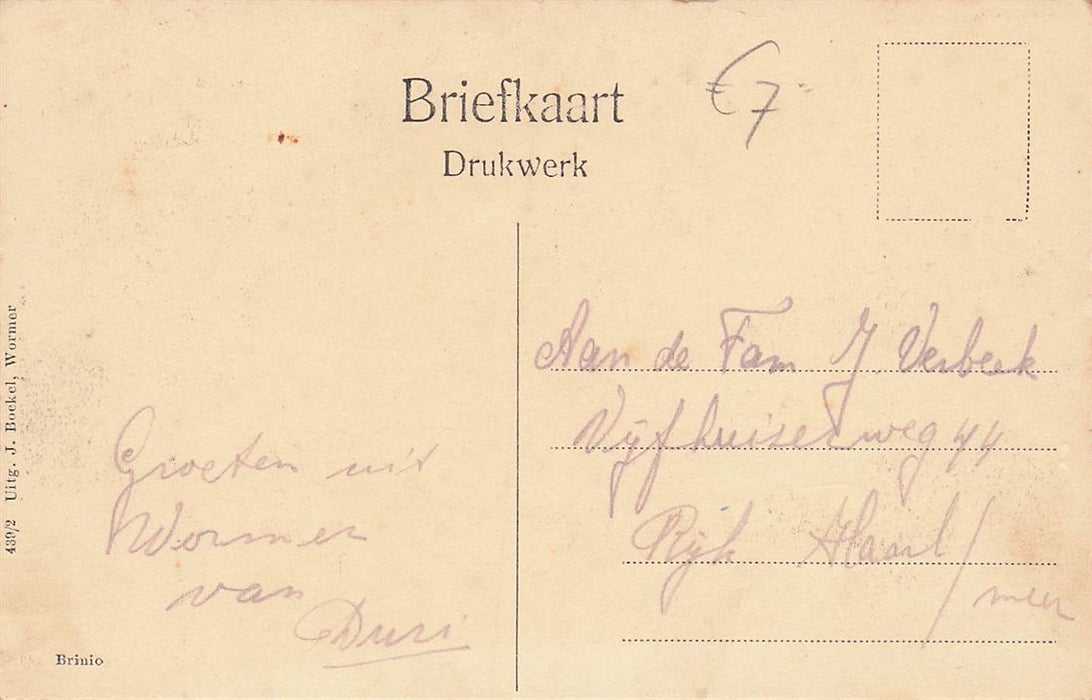 Briefkaart
Drukwerk
€ 7=
439/2 Uitg. J. Boekel, Wormer
Groeten uit
Wormer
van
Brinio
Aan de Fam J. Verbeek
Vijfhuizerweg 44
Rijk Haarl/
meer